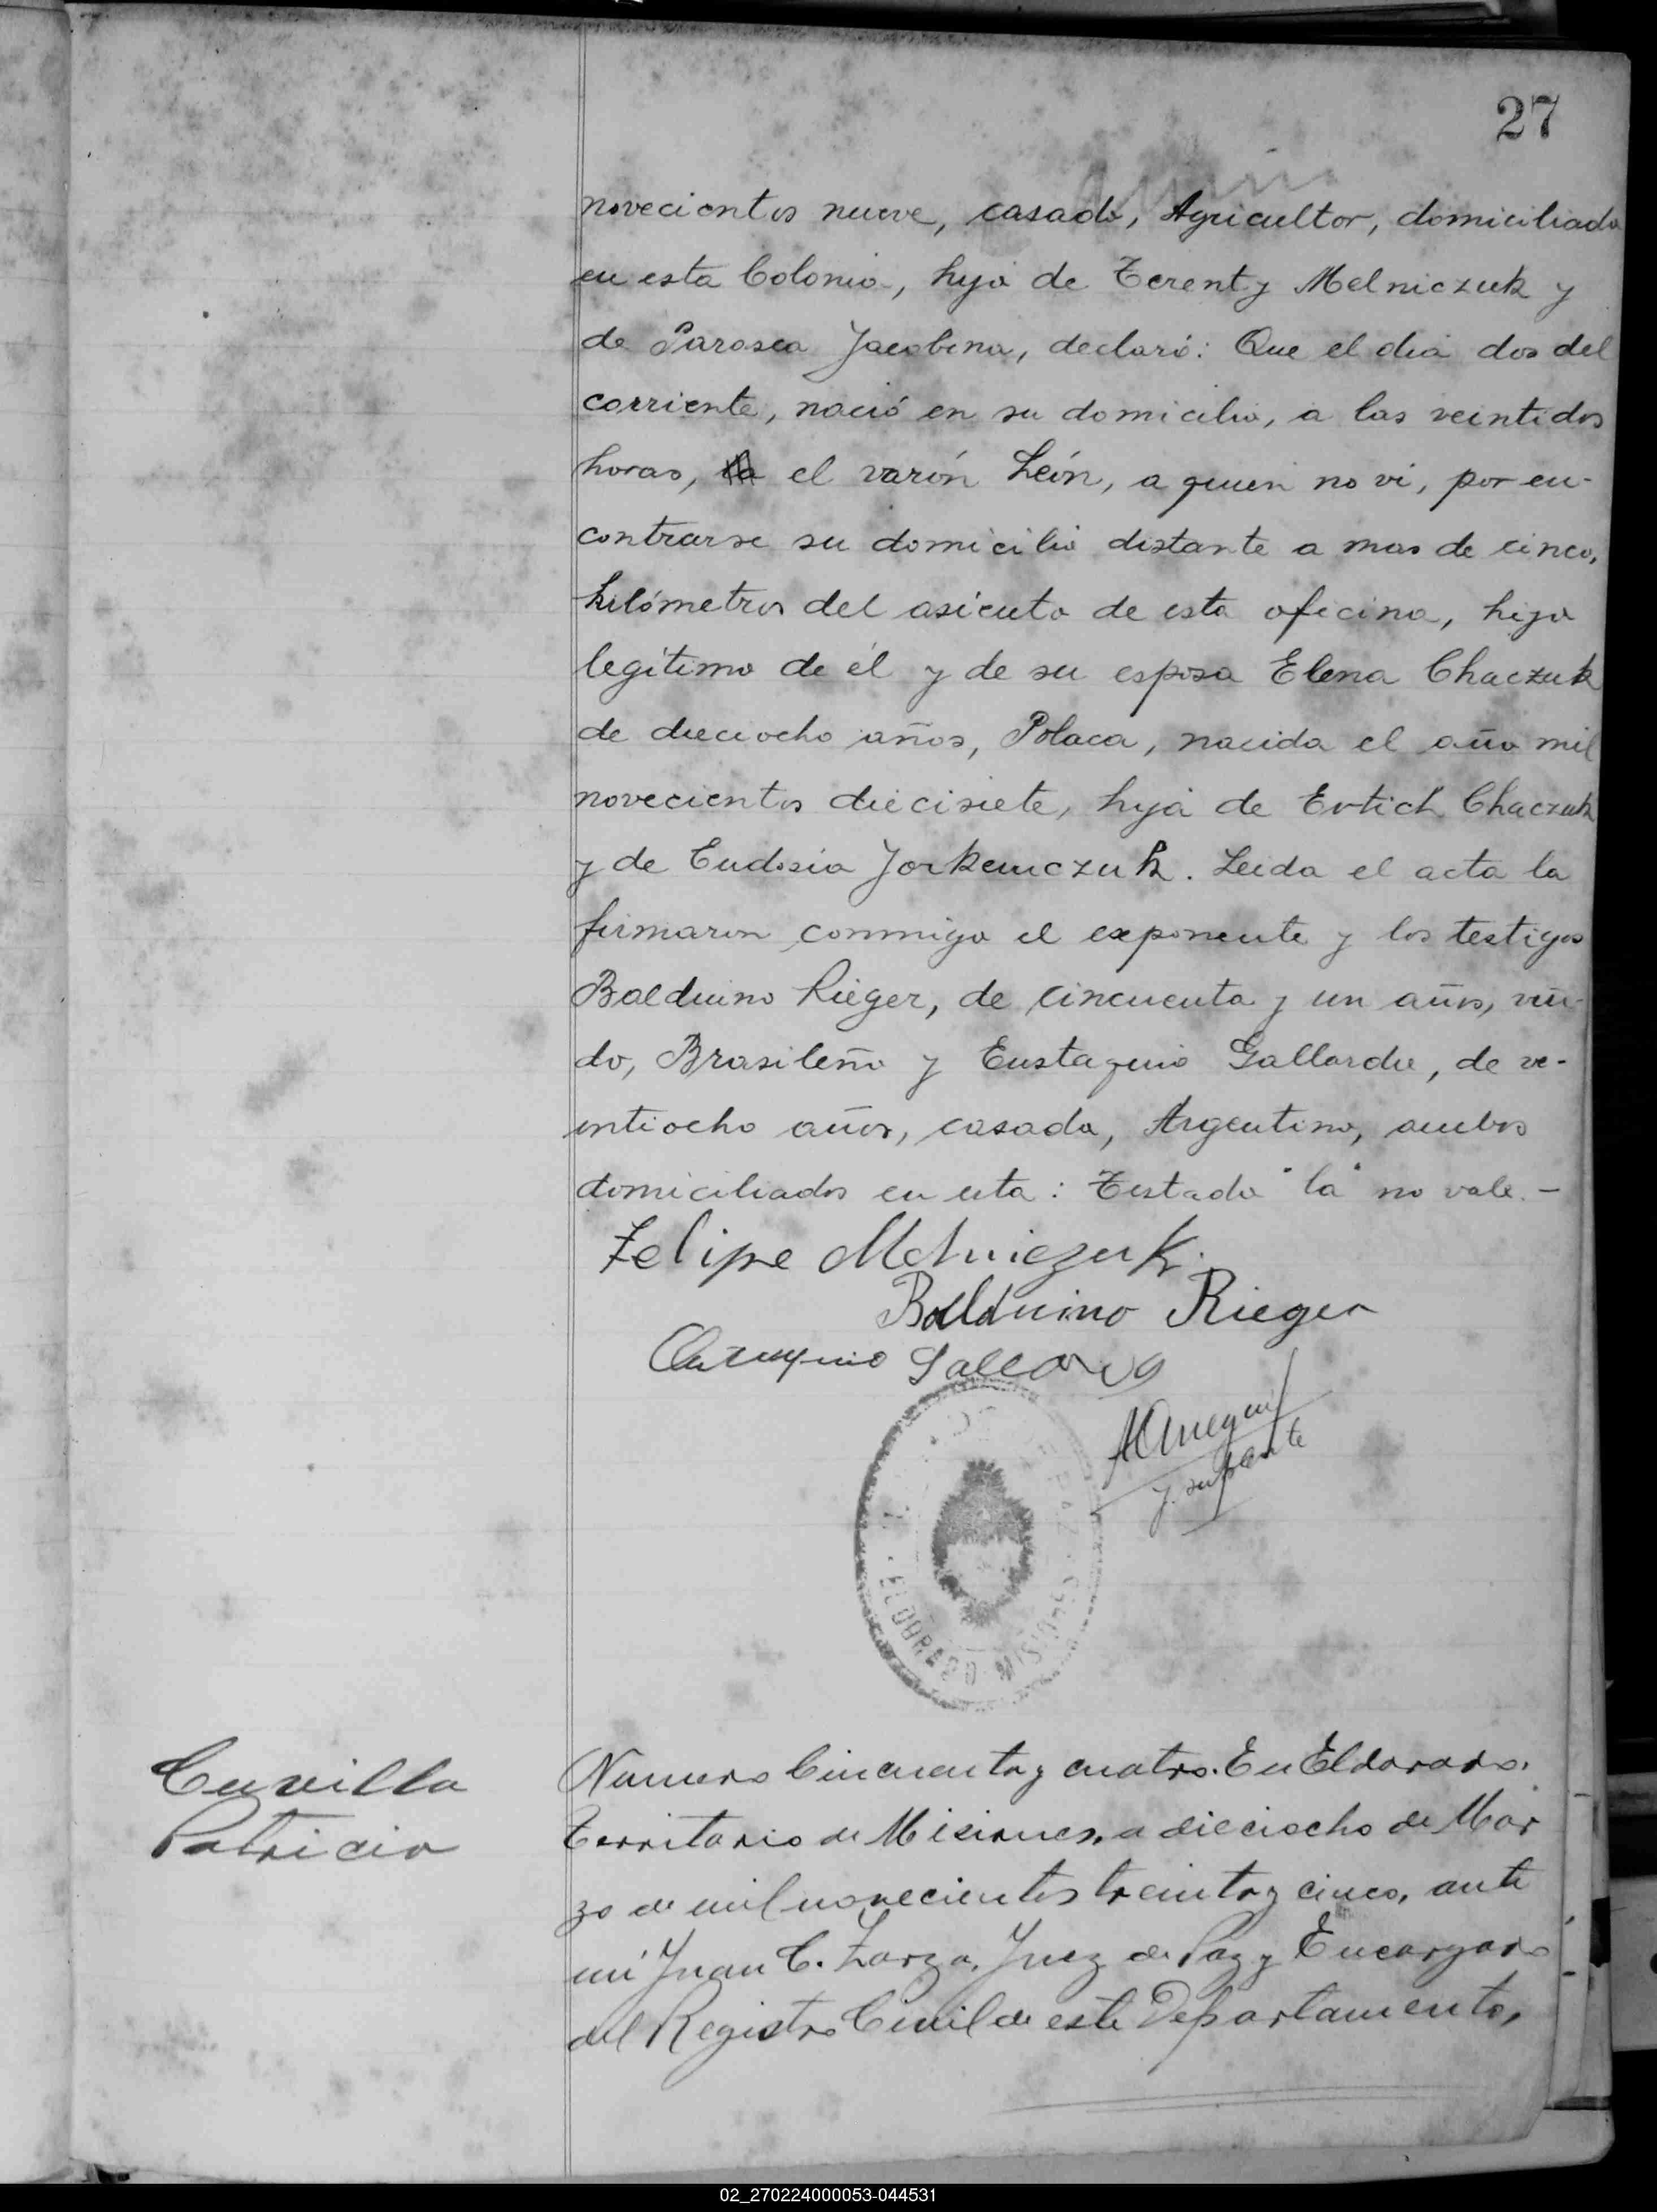 27
novecientos nueve, casado, Agricultor, domiciliado
en esta Colonia, hijo de Terenty Melniczuk y
de Parosca Jacobena, declaró: Que el dia dos del
corriente, nació en su domicilio, a las veintidos
horas, la el varón León, a quien no vi, por en-
contrarse su domicilio distante a mas de cinco,
kilómetros del asiento de esta oficina, hijo
legítimo de él y de su esposa Elena Chaczuk
de dieciocho años, Polaca, nacida el año mil
novecientos diecisiete, hija de Evtich Chaczuk
y de Eudosia Jorkemczuk. Leida el acta la
firmaron conmigo el exponente y los testigos
Balduino Rieger, de cincuenta y un años, viu-
do, Brasileño y Eustaquio Gallardo, de ve-
intiocho años, casado, Argentino, ambos
domiciliados en esta: Testado "la" no vale.-
Felipe Melniczuk.
Balduino Rieger
Gallardo
y suplente
ELDORADO MISIONES
Cuvilla
Patricio
Numero Cincuenta y cuatro. En Eldorado.
Territorio de Misiones, a dieciocho de Mar
zo de mil novecientos treinta y cinco, ante
mi Juan C. Zarza, Juez de Paz y Encargado
del Registro Civil de este Departamento,
02_270224000053-044531